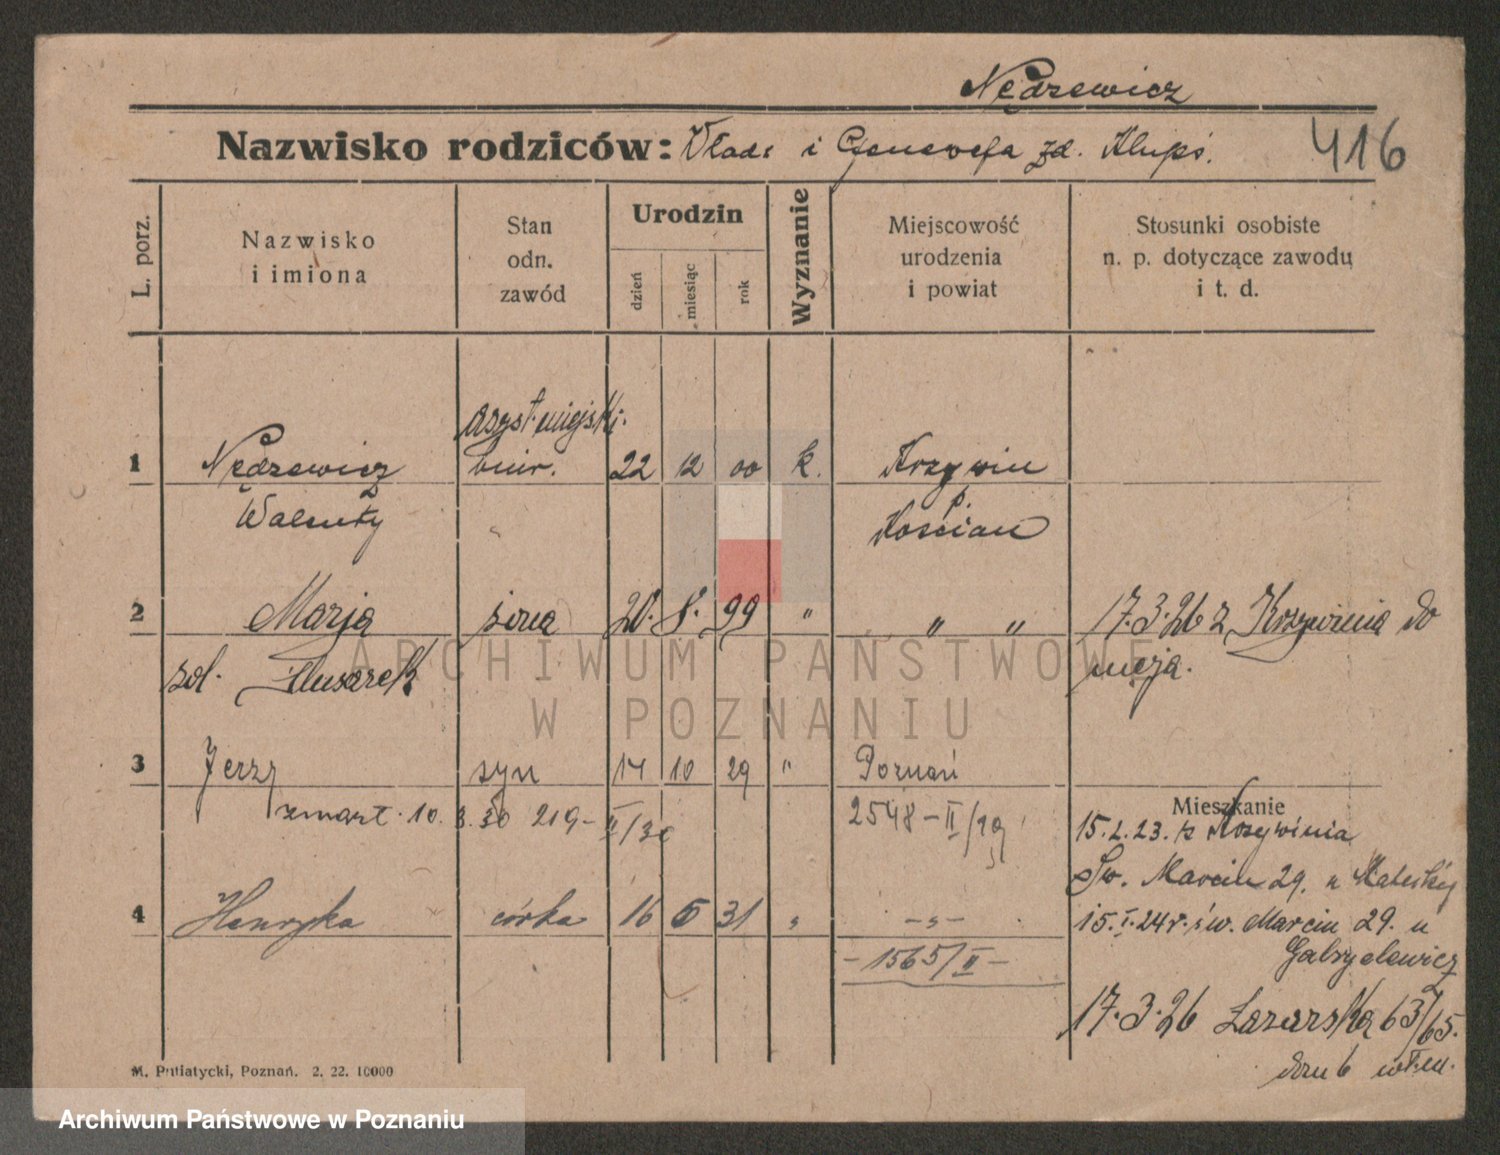 Nędzewicz
Nazwisko rodziców: Wład. i Genowefa zd. Klupś.
416
L. porz.
Nazwisko i imiona
Stan odn. zawód
Urodzin
dzień
miesiąc
rok
Wyznanie
Miejscowość urodzenia i powiat
Stosunki osobiste n. p. dotyczące zawodu i t. d.
asyst. miejski.
1 Nędzewicz biur. 22 12 00 k. Krzywiń
Walenty p. Kościan
2 Marja żona 20. 8. 99 " " " 17.3.26 z Krzywinia do
zd. Ślusarek męja.
3 Jerzy syn 14 10 29 " Poznań
zmarł. 10. 3. 30 219- II/30 2548-II/29
Mieszkanie
15.2.23. z Krzywinia
Św. Marcin 29. u
4 Henryka córka 16 5 31 " -"-
15.I.24r. św. Marcin 29. u
Gabryelewicz
-1565/II-
17.3.26 Łazarska 63/65.
dzu 6
M. Putiatycki, Poznań. 2. 22. 10000
ARCHIWUM PAŃSTWOWE
W POZNANIU
Archiwum Państwowe w Poznaniu